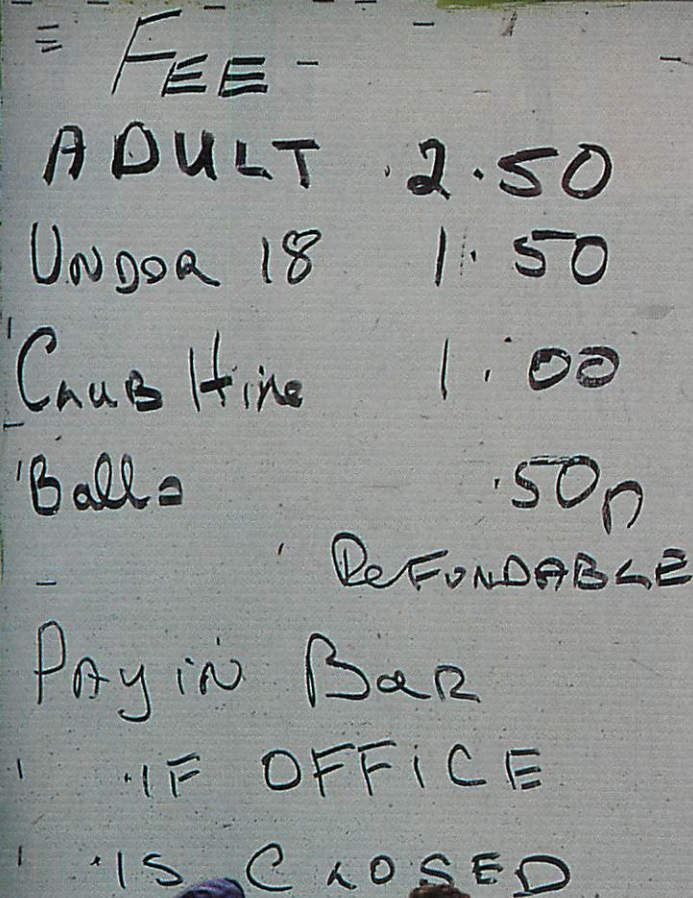 FEE -
ADULT 2.50
UNDER 18 1.50
CLUB Hire 1.00
Balls .50p
REFUNDABLE
PAY iN BaR
IF OFFiCE
IS CLOSED